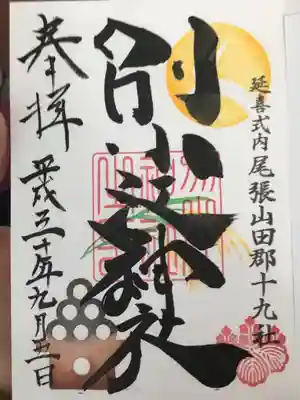 延喜式内 尾張山田郡十九社
別小江神社
奉拝 平成三十年九月五日